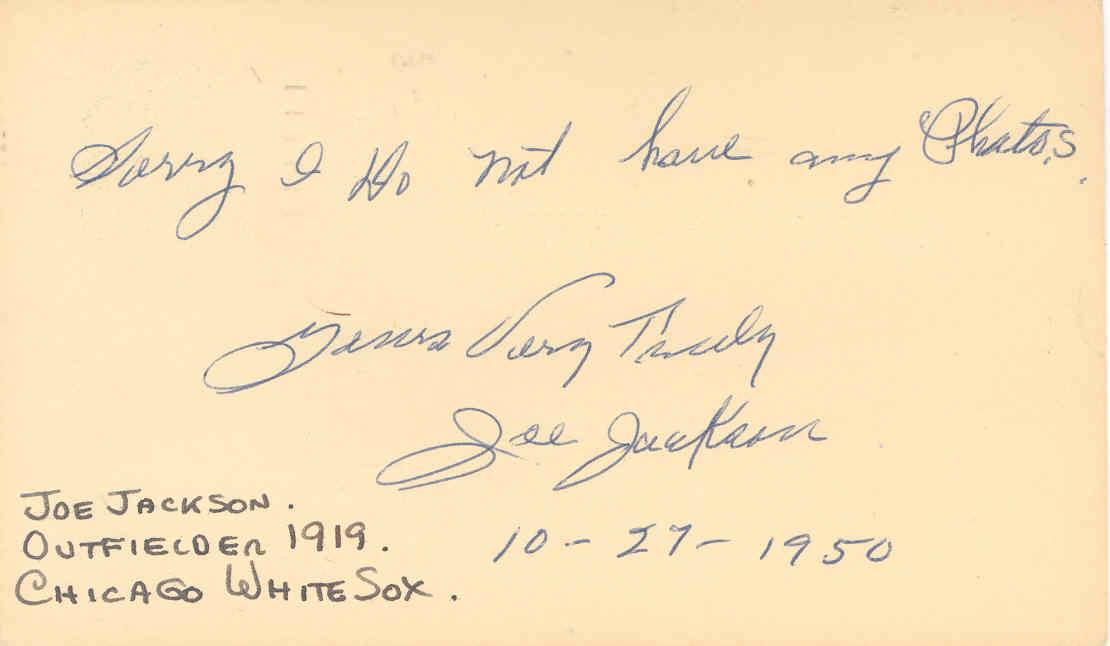 Sorry I Do not have any Photos.
Yours Very Truly
Joe Jackson
10-27-1950
JOE JACKSON.
OUTFIELDER 1919.
CHICAGO WHITE SOX.